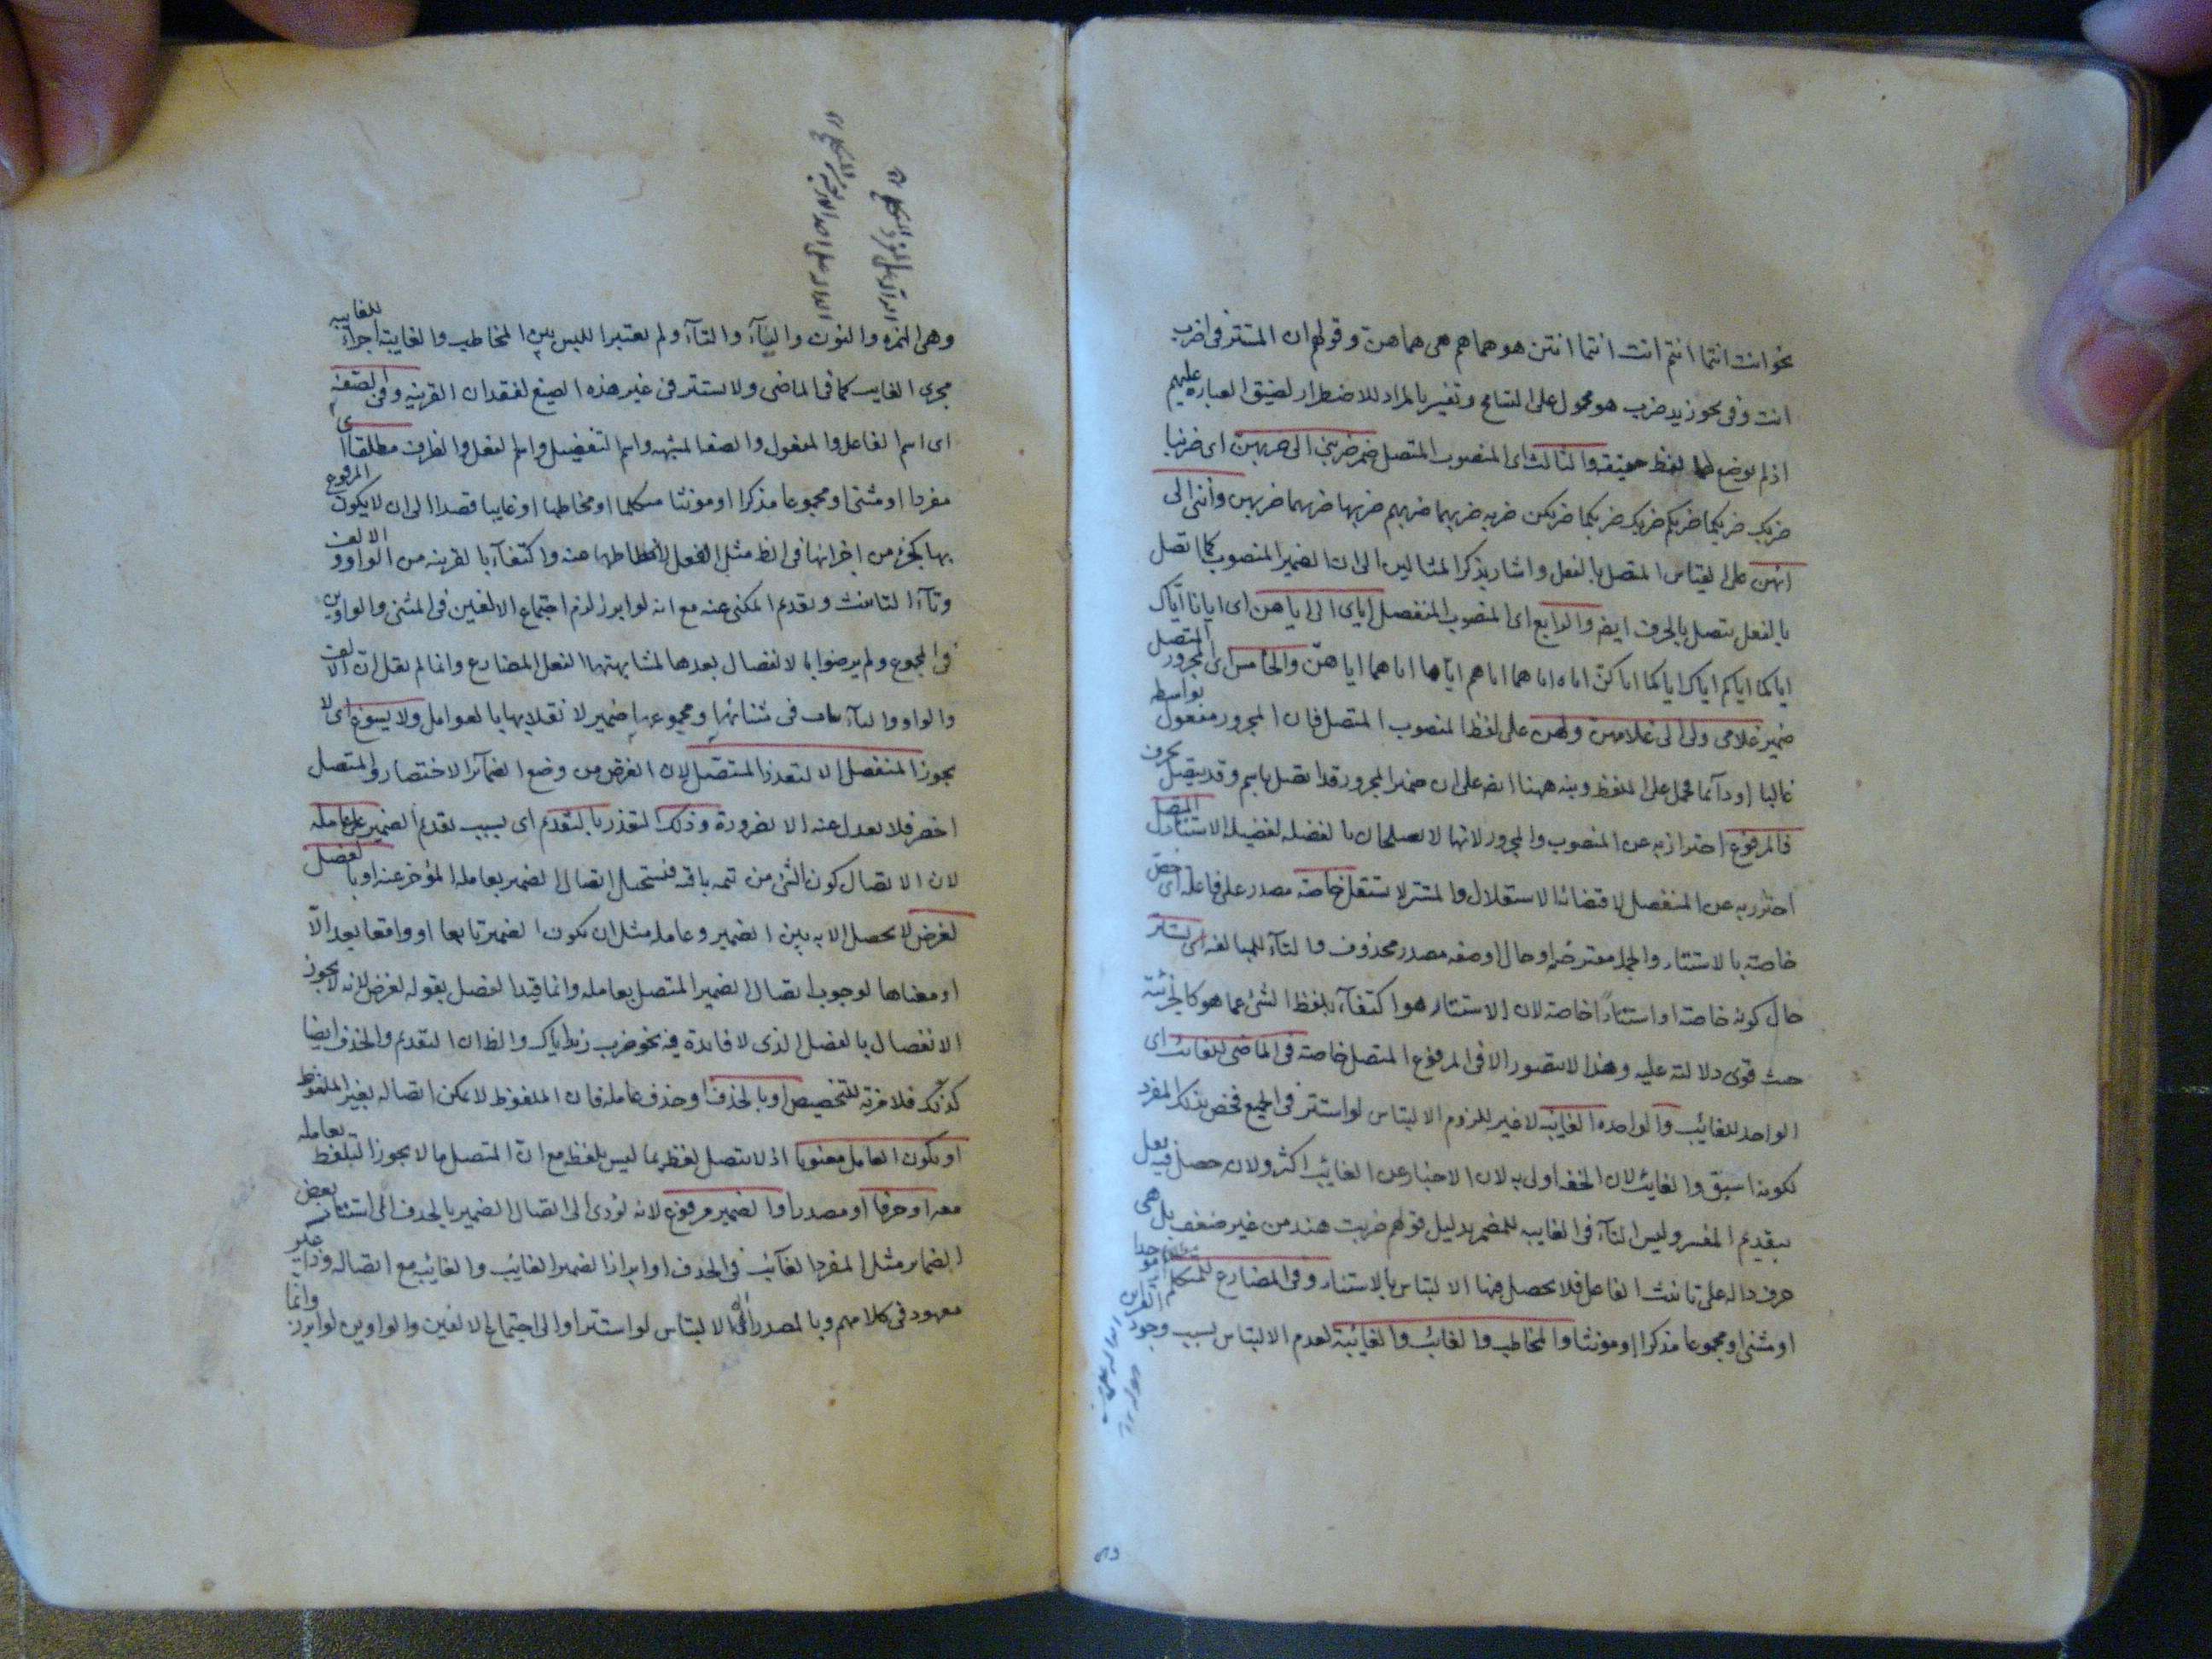 نحو انت انتما انتم انت انتما انتن هو هما هم هي هما هن وقولهم ان المستتر في اضرب
انت وفي نحو زيد ضرب هو محمول على التسامح وتفسير بالمراد للاضطرار لضيق العباره عليهم
اذ لم يوضع لهما لفظ حقيقة والثالث اى المنصوب المتصل ضمير ضربني الى ضربهن اى ضربنا
ضربك ضربكما ضربكم ضربك ضربكما ضربكن ضربه ضربهما ضربهم ضربها ضربهما ضربهن وانني الى
انهن على القياس المتصل بالفعل واشار بذكر المثالين الى ان الضمير المنصوب كما اتصل
بالفعل يتصل بالحرف ايضه والرابع اى المنصوب المنفصل اياى الى اياهن اى ايانا اياك
اياكما اياكم اياك اياكما اياكن اياه اياهما اياهم اياها اياهما اياهن والخامس اى المجرور المتصل
ضمير غلامى ولى الى غلامهن ولهن على لفظ المنصوب المتصل فان المجرور مفعول بواسطه
غالبا او دآئما فحمل على اللفظ ونبه ههنا ايضه على ان ضمير المجرور قد اتصل باسم وقد يتصل بحرف
فالمرفوع احتراز به عن المنصوب والمجرور لانهما لا يصلحان بالفضله لفضيلة الاستتار المتصل
احترز به عن المنفصل لاقتضائه الاستقلال والمستتر لا يستقل خاصة مصدر على فاعلة اى خص
خاصته بالاستتار والجملة معترضه او حال او صفه مصدر محذوف والتآء للمبالغه اى يستتر
حال كونه خاصته او استتارا خاصته لان الاستتار هو اكتفآء بلفظ الشئ عما هو كالجزئه
حيث قوى دلالته عليه وهذا لا يتصور الا في المرفوع المتصل خاصته في الماضى للغائب اى
الواحد للغائب والواحده الغائبه لا غير للزوم الالتباس لو استتر في الجميع فخص بذلك المفرد
لكونه اسبق والغائب لان الخفه اولى به لان الاخبار عن الغائب اكثر ولان حصل فيه ثقل
بتقديم المفسر وليس التآء في الغايبه للمضمر بدليل قولهم ضربت هند من غير ضعف بل هى
حرف داله على تانيث الفاعل فلا يحصل منها الالتباس بالاستتار وفي المضارع للمتكلم
او مثنى او مجموعا مذكرا او مونثا والمخاطب والغائب والغائبة لعدم الالتباس بسبب وجود القراين
وهى الهمزه والنون واليآء والتآء ولم يعتبروا اللبس بين المخاطب والغايبة اجراء للغايبه
مجرى الغايب كما في الماضى ولا يستتر في غير هذه الصيغ لفقدان القرينه وفي الصفه
اى اسم الفاعل والمفعول والصفه المشبهه واسم التفضيل واسم الفعل والظرف مطلقا اى
مفردا او مثنى او مجموعا مذكرا او مونثا متكلما او مخاطبا او غايبا قصدا الى ان لا يكون المرفوع
بها كجزء من اجزائها في اللفظ مثل الفعل لانحطاطها عنه واكتفآء بالقرينه من الواو والالف
وتآء التانيث وتقدم المكنى عنه مع انه لو ابرز لزم اجتماع الالفين في المثنى والواوين
في المجموع ولم يرضوا بالانفصال بعدها لمشابهتها الفعل المضارع وانما لم نقل ان الالف
والواو واليآء في مثنائها ومجموعها ضمير لانقلابها بالعوامل ولا يسوغ اى لا
يجوز المنفصل الا لتعذر المتصل لان الغرض من وضع الضمآئر الاختصار والمتصل
اخصر فلا يعدل عنه الا لضرورة وذلك التعذر بالتقدم اى بسبب تقدم الضمير على عامله
لان الاتصال كون الشئ من تتمه باقيه فيستحيل اتصال الضمير بعامله المؤخر عنه او بالفصل
لغرض لا يحصل الا به بين الضمير وعامله مثل ان يكون الضمير تابعا او واقعا بعد الّا
او معناها لوجوب اتصال الضمير المتصل بعامله وانما قيد الفصل بقوله لغرض لانه لا يجوز
الانفصال بالفصل الذى لا فائدة فيه نحو ضرب زيد اياك والظ ان التقدم والحذف ايضا
كذلك فلا مزية للتخصيص او بالحذف او حذف عامله فان الملفوظ لا يمكن اتصاله بغير الملفوظ
او بكون العامل معنويا اذ لا يتصل لفظ بما ليس بلفظ مع ان المتصل ما لا يجوز التلفظ بعامله
معه او حرفا او مصدرا والضمير مرفوع لانه يؤدى الى اتصال الضمير بالحرف او الى استتار بعض
الضماير مثل المفرد الغآئب في الحرف او ابراز الضمير الغائب والغائبه مع اتصاله وذا غير
معهود في كلامهم وبالمصدر الى الالتباس لو استتر او الى اجتماع الالفين والواوين لو ابرز وانما